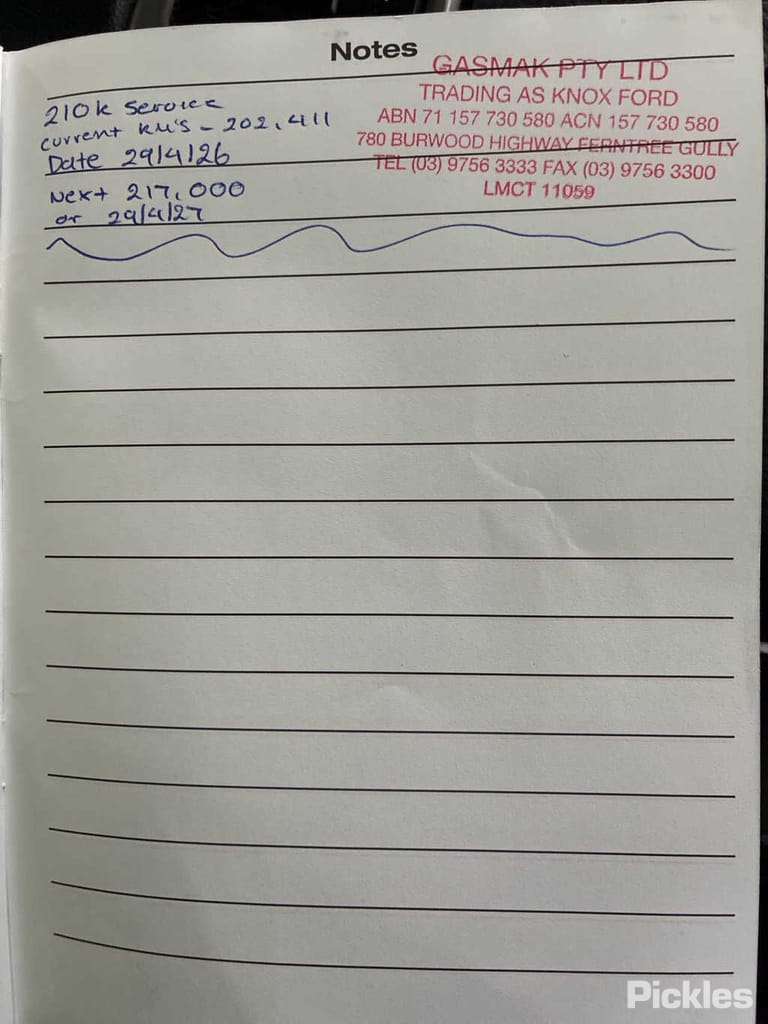 Notes
210k Service
current KM's - 202,411
Date 29/4/26
Next 217,000
or 29/4/27
GASMAK PTY LTD
TRADING AS KNOX FORD
ABN 71 157 730 580 ACN 157 730 580
780 BURWOOD HIGHWAY FERNTREE GULLY
TEL (03) 9756 3333 FAX (03) 9756 3300
LMCT 11059
Pickles